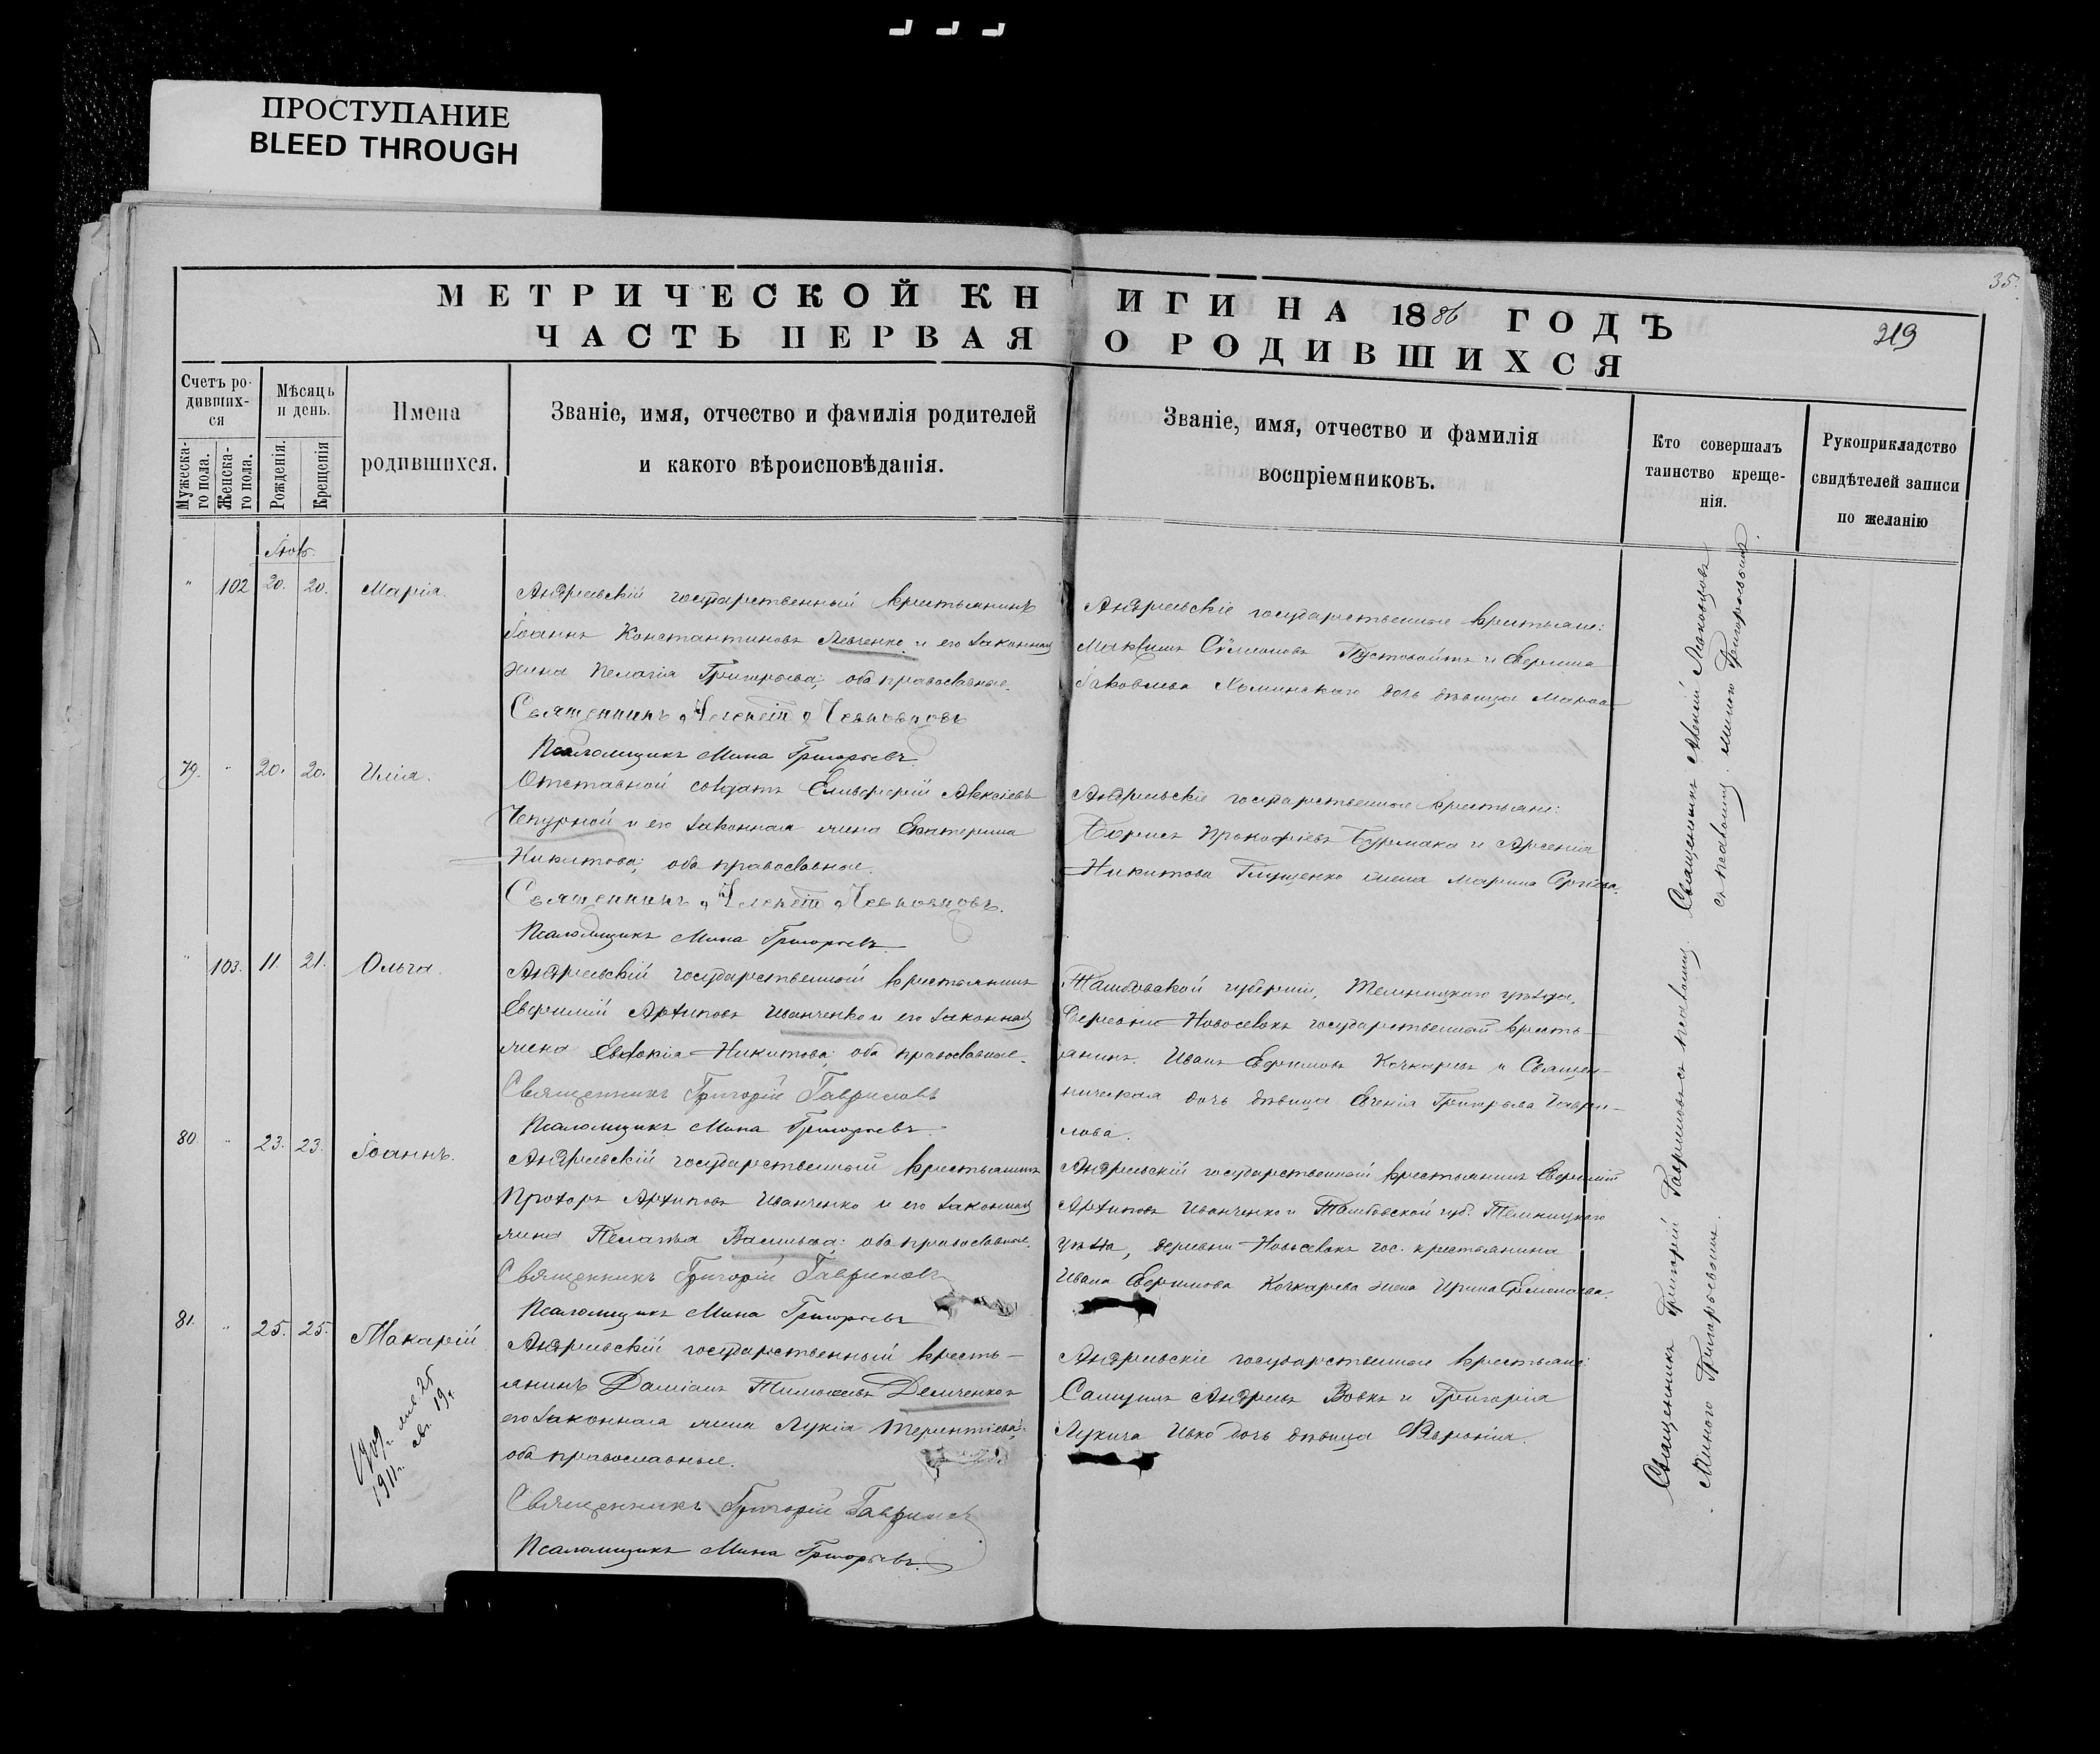 ПРОСТУПАНИЕ
BLEED THROUGH
35.
219
МЕТРИЧЕСКОЙ КНИГИ НА 1886 ГОДЪ
ЧАСТЬ ПЕРВАЯ О РОДИВШИХСЯ
Счетъ ро-
дивших-
ся
Мужеска-
го пола.
Женска-
го пола.
Мѣсяць
и день.
Рожденія.
Крещенія
Имена
родившихся.
Званіе, имя, отчество и фамилія родителей
и какого вѣроисповѣданія.
Званіе, имя, отчество и фамилія
воспріемниковъ.
Кто совершалъ
таинство креще-
нія.
Рукоприкладство
свидѣтелей записи
по желанію
" 102 20. 20. Марія
Андреевскій государственный крестьянинъ
Іоаннъ Константиновъ Левченко и его законная
жена Пелагія Григорьева; оба православные.
Священникъ
Псаломщикъ Мина Григорьевъ
Андреевскіе государственные крестьяне:
Максимъ Сѵмеоновъ Пустовойтъ и Ефрема
Іаковлева Хоминскаго дочь дѣвица Марѳа
79. " 20. 20. Илія.
Отставной солдатъ Елевферій Алексіевъ
Чепурной и его законная жена Екатерина
Никитова; оба православные.
Священникъ
Псаломщикъ Мина Григорьевъ
Андреевскіе государственные крестьяне:
Борисъ Прокофіевъ Бурмака и Арсенія
Никитова Глущенко жена Марина Сергіева.
" 103. 11. 21. Ольга.
Андреевскій государственный крестьянинъ
Евфимій Архиповъ Иванченко и его законная
жена Евдокія Никитова; оба православные.
Священникъ Григорій Гавриловъ
Псаломщикъ Мина Григорьевъ
Тамбовской губерніи, Темницкаго уѣзда,
деревни Новоселокъ государственный кресть-
янинъ Иванъ Ефимовъ Кочкаревъ и Священ-
ническая дочь дѣвица Евгенія Григорьева Гаври-
лова.
80. " 23. 23. Іоаннъ.
Андреевскій государственный крестьянинъ
Прохоръ Архиповъ Иванченко и его законная
жена Пелагія Васильева; оба православные.
Священникъ Григорій Гавриловъ
Псаломщикъ Мина Григорьевъ
Андреевскій государственный крестьянинъ Евфимій
Архиповъ Иванченко и Тамбовской губ. Темницкаго
уѣзда, деревни Новоселокъ гос. крестьянина
Ивана Ефимова Кочкарева жена Ирина
81. " 25. 25. Макарій
Андреевскій государственный кресть-
янинъ Даміанъ Тимоѳеевъ Демченко и
его законная жена Лукія Терентіева;
оба православные.
Священникъ Григорій Гавриловъ
Псаломщикъ Мина Григорьевъ
Андреевскіе государственные крестьяне:
Самуилъ Андреевъ Вовкъ и Григорія
Лукича Ивко дочь дѣвица Февронія.
1909 г. янв. 25
1911 г. авг. 19 г.
Священникъ Алексій
съ псаломщ. Миною Григорьевымъ.
Священникъ Григорій Гавриловъ съ псаломщ.
Миною Григорьевымъ.